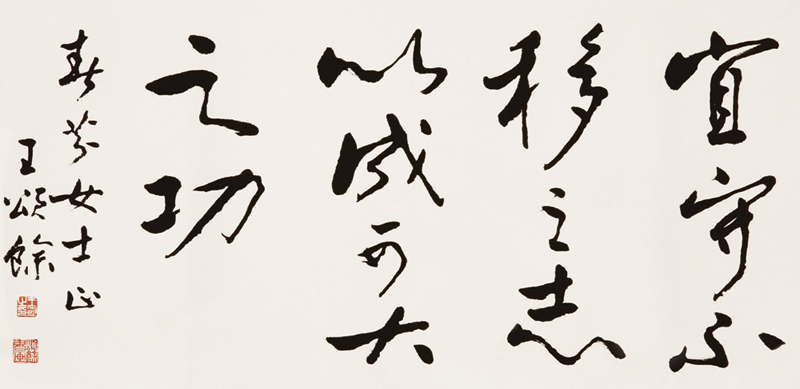 宜守不
移之志
以成可大
之功
春芬女士正
王頌餘